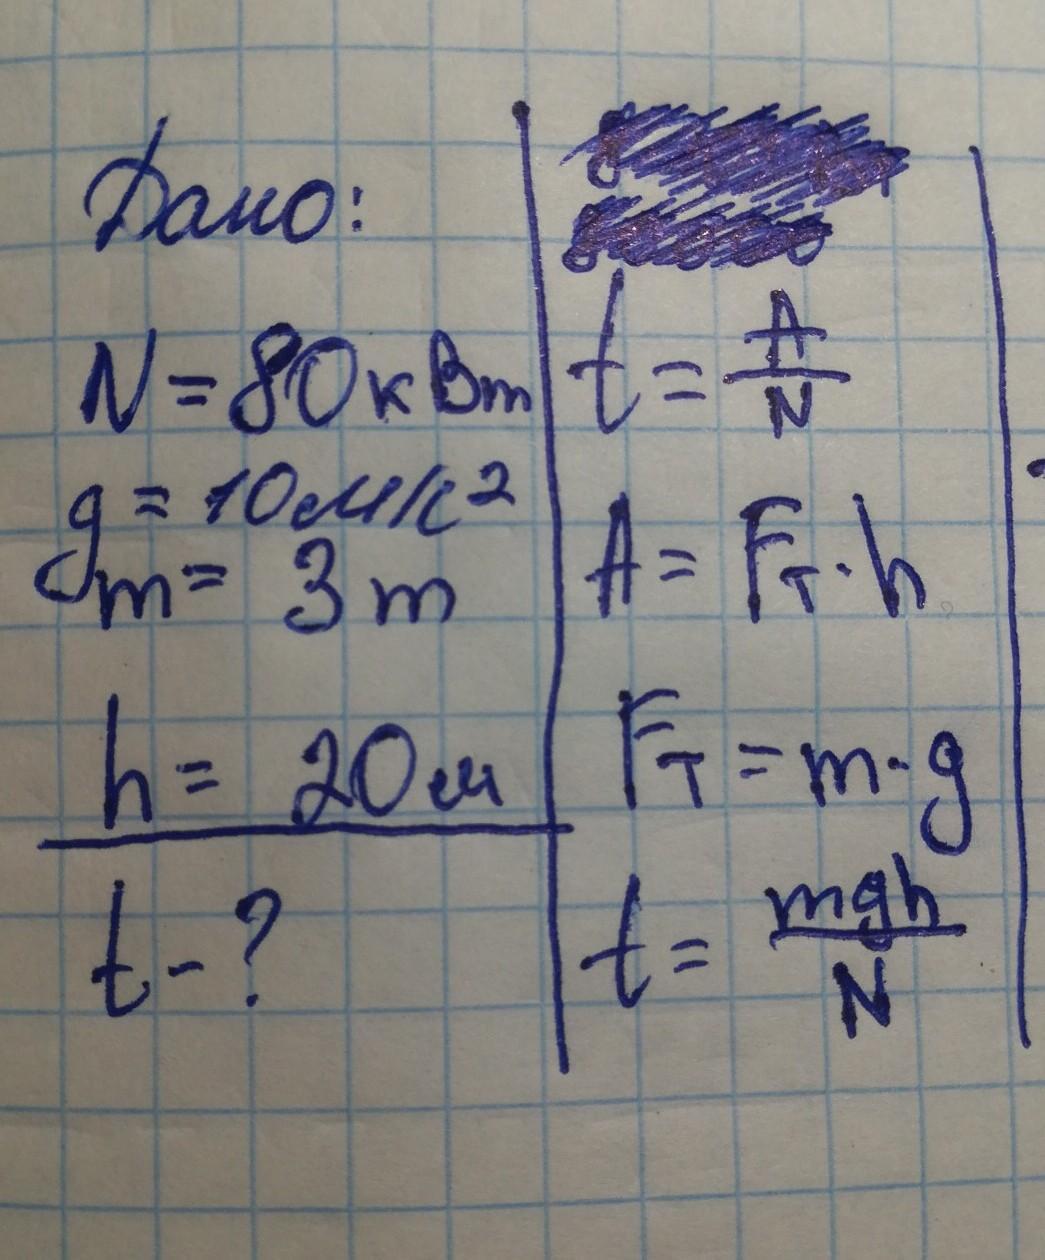 Дано:
N = 80 кВт
g = 10 м/с²
m = 3 т
h = 20 м
t - ?
t = A/N
A = Fт · h
Fт = m · g
t = mgh/N